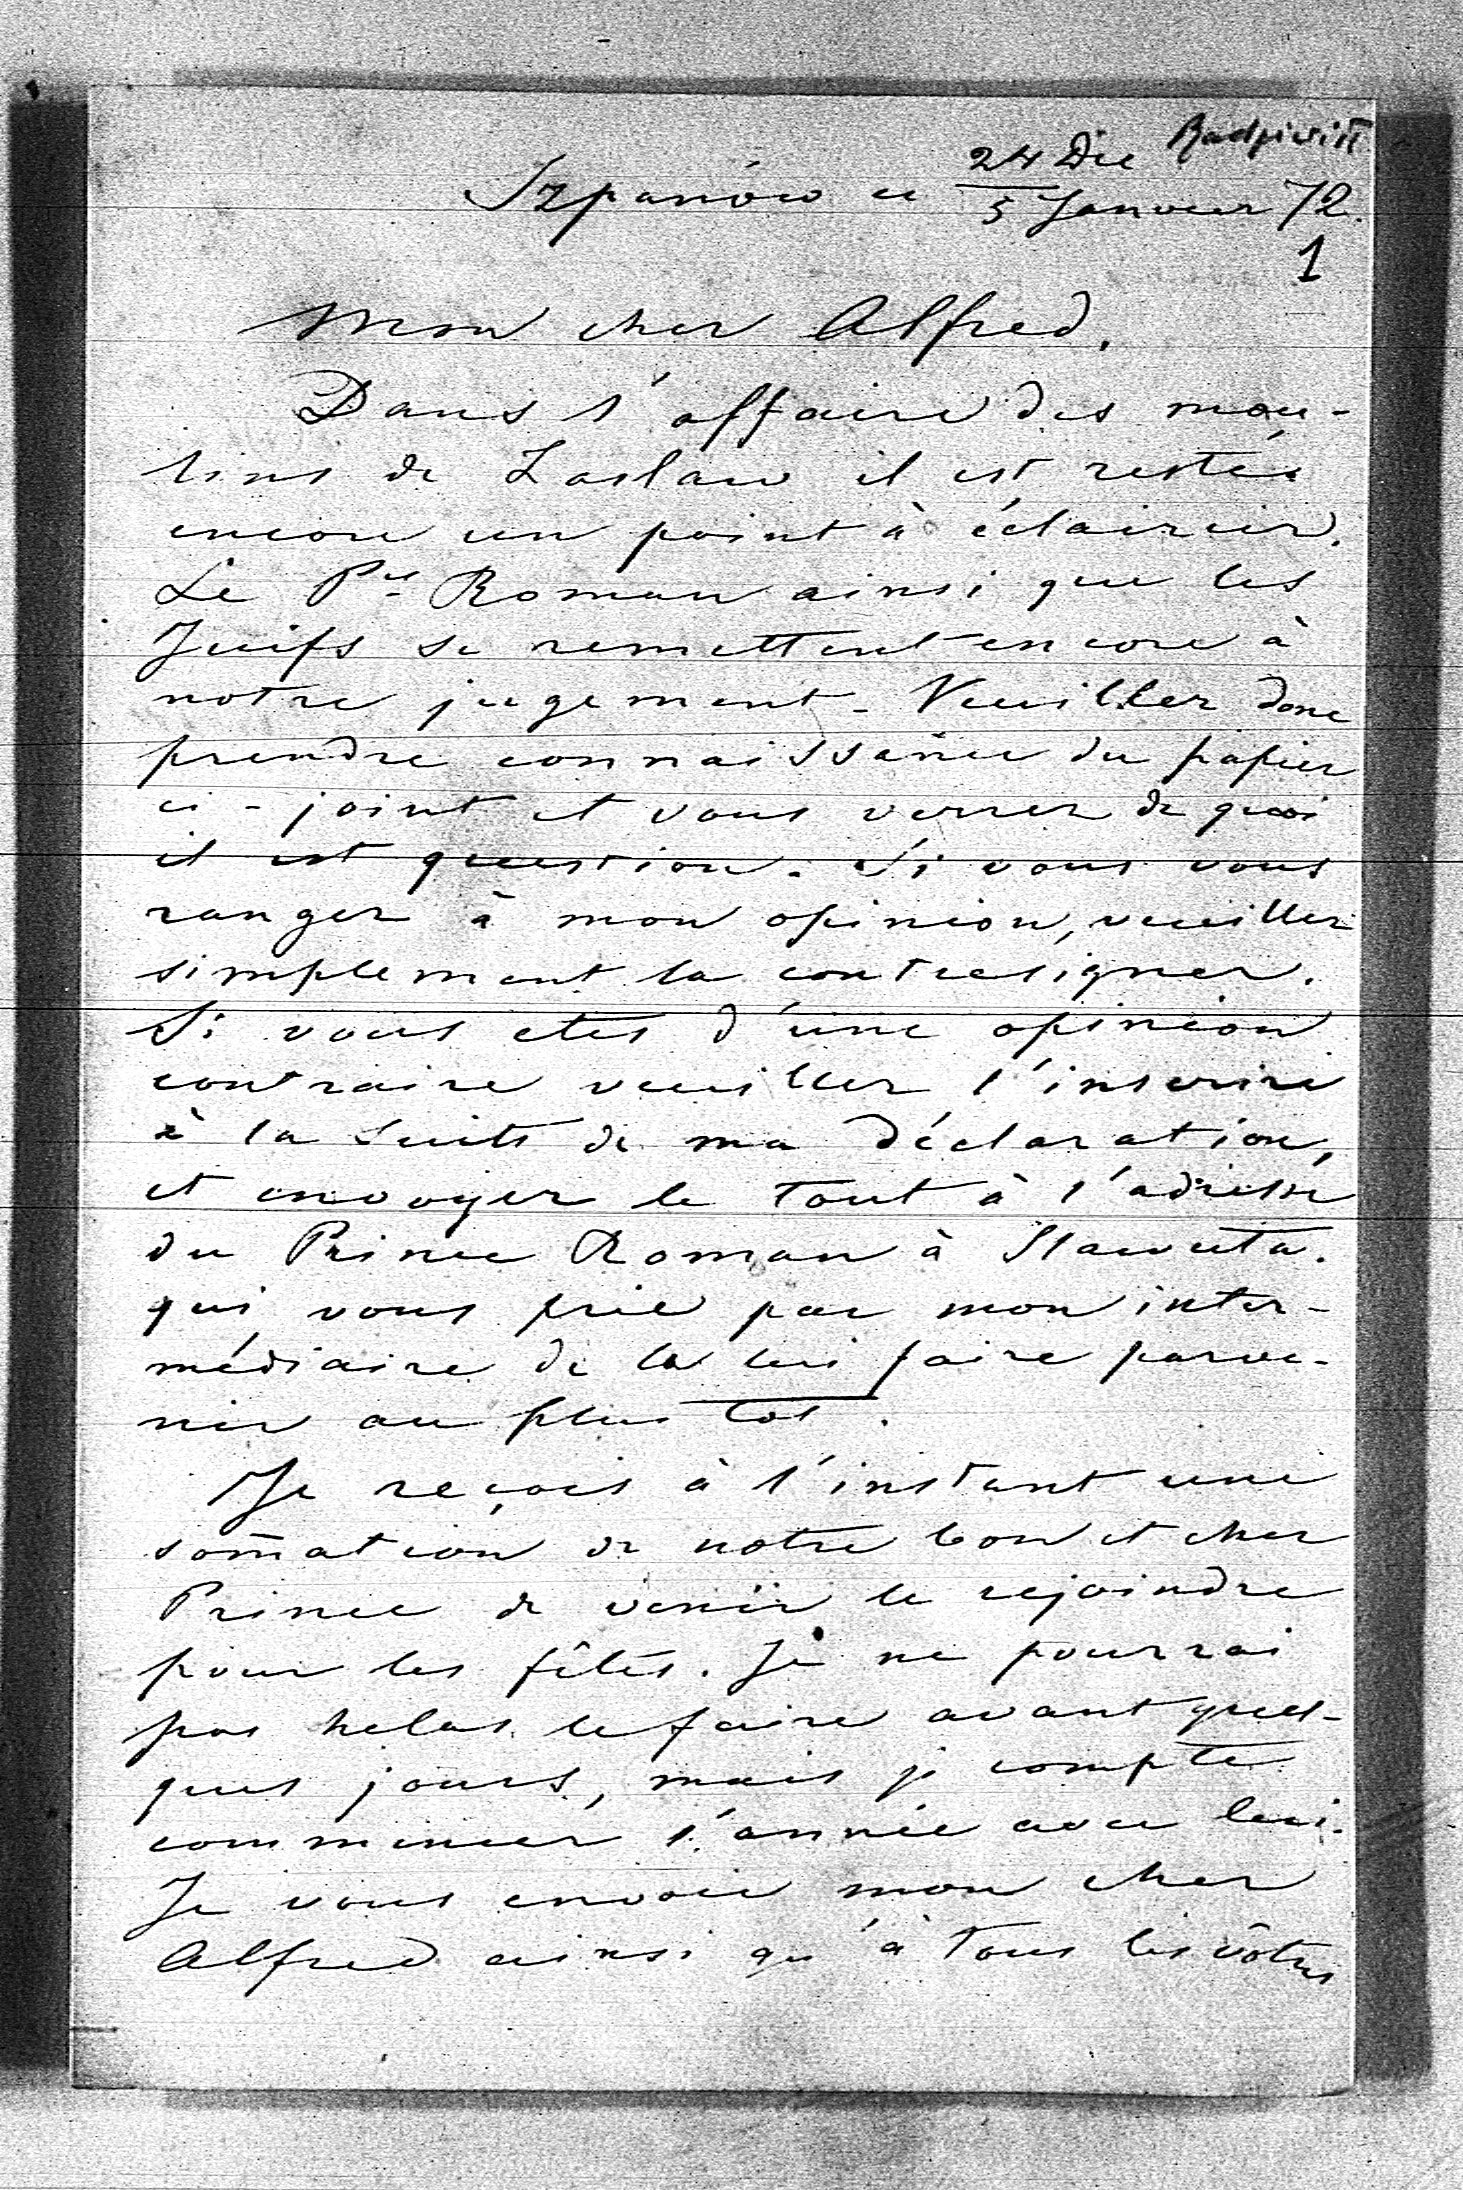 Radziwiłł
Szpanów ce 24 Dec / 5 Janvier 72.
1
Mon cher Alfred.
Dans l'affaire des mou-
lins de Zaslaw il est restée
encore un point à éclaircir.
Le Pce Roman ainsi que les
Juifs se remettent encore à
notre jugement. Veuillez donc
prendre connaissance du papier
ci-joint et vous verrez de quoi
il est question. Si vous vous
rangez à mon opinion, veuillez
simplement la contresigner.
Si vous etes d'une opinion
contraire veuillez l'inscrire
à la suite de ma déclaration,
et envoyer le tout à l'adresse
du Prince Roman à Slawuta.
qui vous prie par mon inter-
médiaire de la lui faire parve-
nir au plus tot.
Je reçois à l'instant une
som̄ation de notre bon et cher
Prince de venir le rejoindre
pour les fêtes. Je ne pourrai
pas helas le faire avant quel-
ques jours, mais je compte
commencer l'année avec lui.
Je vous envoie mon cher
Alfred ainsi qu'à tous les vôtres